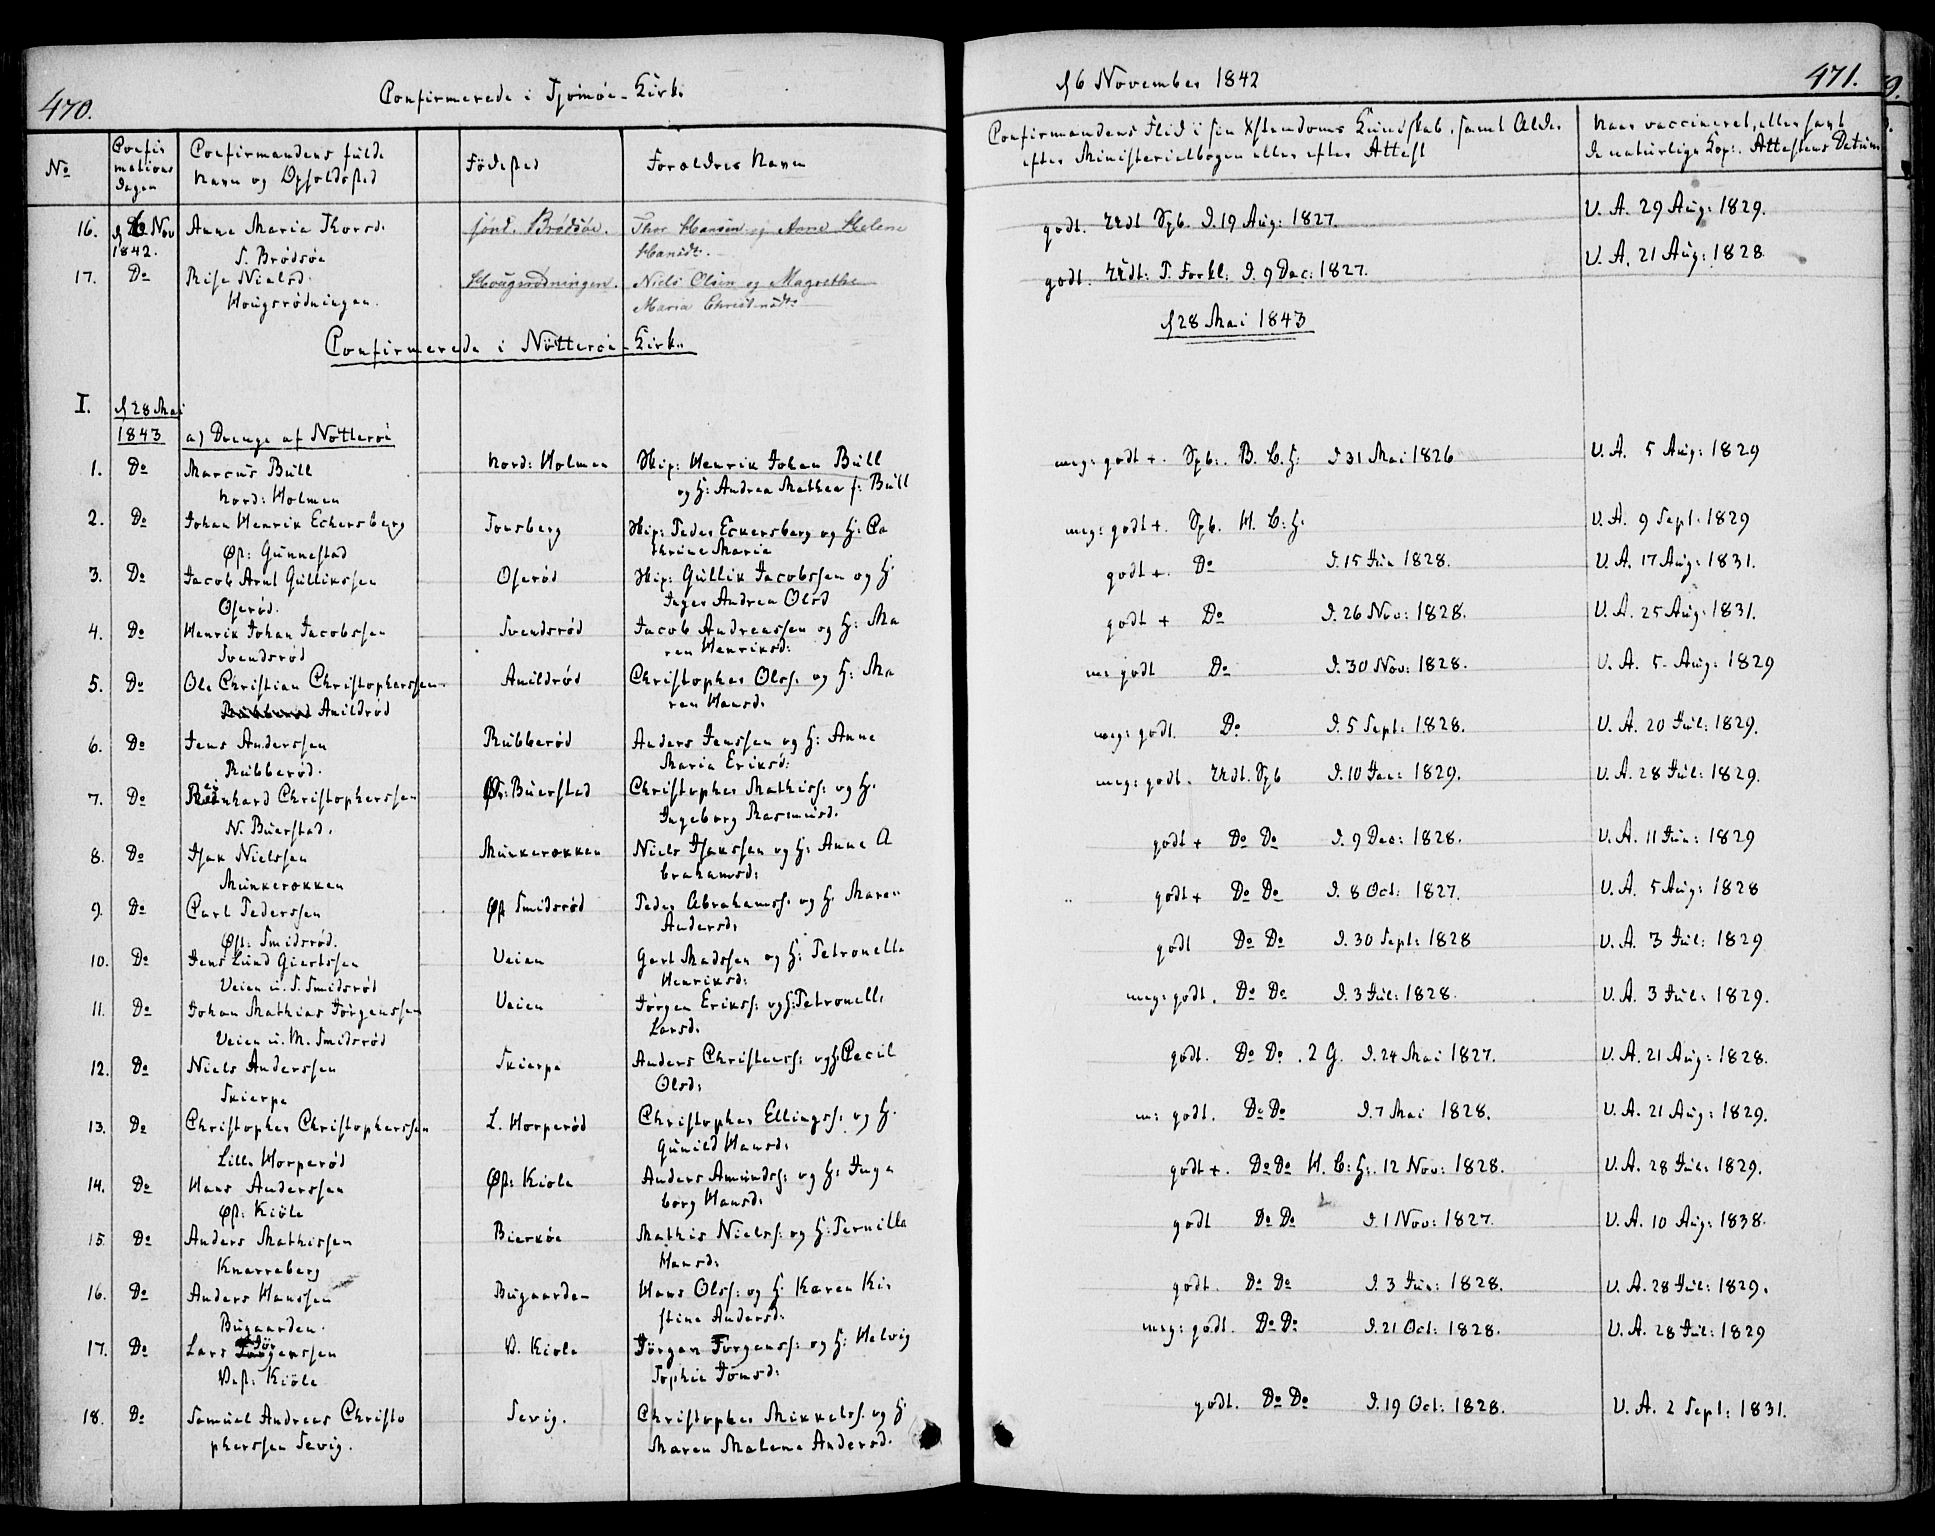 470.
Confirmerede i Tjømøe-Kirke
No
Confir
mations
Dagen
Confirmandens fulde
Navn og Opholdsted
Födested
Foraldres Navn
16.
d 6 Nov
1842.
Anna Maria Thorsd.
S. Brödsöe
sönd. Brödsöe.
Thor Hansen og Anne Helene
Hansdr.
17.
Do
Rise Nielsd.
Hougsrödningen.
Hougsrödningen.
Niels Olsen og Magrethe
Maria Christ
Confirmerede i Nötteröe-Kirke
I.
d 28 Mai
1843
a) Drenge af Nötteröe
1.
Do
Marcus Bull
Nord: Holmen
Nord: Holmen
Skip: Henrik Johan Bull
og H: Andrea Mathea f: Bull
2.
Do
Johan Henrik Eckersberg
Øst: Gunnestad
Tonsberg
Skip: Peder Eckersberg og H: Ca
thrine Marie
3.
Do
Jacob Arnt Gulliksen
Oserød.
Oserød
Skip: Gullik Jacobssen og H.
Inger Andrea Olsd
4.
Do
Henrik Johan Jacobssen
Svendsrød
Svendsrød
Jacob Andreassen og H: Ma
ren Henriksd:
5.
Do
Ole Christian Christopherssen
Rubberød Anildrød
Anildrød
Christopher Olss. og H: Ma
ren Hansd.
6.
Do
Jens Anderssen
Rubberød.
Rubberød
Anders Jenssen og H: Anne
Maria Eriksd:
7.
Do
Reinhard Christopherssen
N. Buerstad.
Ør: Buerstad
Christopher Mathiss: og H.
Ingeborg Rasmusd.
8.
Do
Isak Nielssen
Munkerøkken
Munkerøkken
Niels Isakssen og H: Anne A
brahamsd:
9.
Do
Carl Pederssen
Øst: Smidsrød.
Øst Smidsrød
Peder Abrahamss. og H. Maren
Andersd.
10.
Do
Jens Lund Giertssen
Veien u. S. Smidsrød
Veien
Gert Madssen og H: Petronella
Henriksd:
11.
Do
Johan Mathias Jörgenssen
Veien u. M. Smidsrød
Veien
Jörgen Erikss: og H: Petronella
Larsd.
12.
Do
Niels Anderssen
Skierpe
Skierpe
Anders Christenss: og H: Cecil
Olsd:
13.
Do
Christopher Christopherssen
Lille Horperød
L. Horperød
Christopher Ellingss. og H.
Gunild Hansd:
14.
Do
Hans Anderssen
Øst: Kiöle
Øst: Kiöle
Anders Amundss: og H: Inge
borg Hansd:
15.
Do
Anders Mathissen
Knarreberg
Bierköe
Mathis Nielss: og H: Pernilla
Hansd:
16.
Do
Anders Hanssen
Bugaarden.
Bugaarden
Hans Olss: og H. Karen Kir
stine Andersd.
17.
Do
Lars Jörgenssen
Vest: Kiöle
V. Kiole
Jörgen Jörgenss: og H: Helvig
Sophie Jonsd:
18.
Do
Samuel Andreas Christo
pherssen Sevig.
Sevig.
Christopher Mikkelss. og H.
Maren Malene Andersd.
d 6 November 1842
471.
Confirmandens Flid i sin Xstendoms Kundskab, samt Alder
efter Ministerialbogen eller efter Attest
Naar vaccineret, eller havt
de naturlige Kop: Attestens Datum
godt. Udt Spb. D. 19 Aug: 1827.
V. A. 29 Aug: 1829.
godt. Udt: P. Forkl. D. 9 Dec: 1827.
V. A. 21 Aug: 1828
d 28 Mai 1843
meg: godt +. Spb:. B. C. H: D 31 Mai 1826
V. A. 5 Aug: 1829
meg: godt +. Spb. H. C: H.
V. A. 9 Sept. 1829
godt +. Do D. 15 Jun 1828.
V. A. 17 Aug: 1831.
godt + Do D. 26 Nov: 1828.
V. A. 25 Aug: 1831.
m: godt Do D. 30 Nov: 1828.
V. A. 5. Aug: 1829
meg: godt. Do D. 5 Sept: 1828.
V. A. 20 Jul: 1829.
meg: godt. Udt. Spb D. 10 Jan: 1829.
V. A. 28 Jul: 1829.
godt + Do Do D. 9 Dec: 1828.
V. A. 11 Jun: 1829
godt + Do Do D. 8 Oct: 1827.
V. A. 5 Aug: 1828
godt Do Do D. 30 Sept: 1828
V. A. 3 Jul: 1829
meg: godt. Do Do D. 3 Jul: 1828.
V. A. 3 Jul: 1829.
godt. Do Do. 2 G. D. 24 Mai 1827.
V. A. 21 Aug: 1828.
m: godt. Do Do D. 7 Mai 1828.
V. A. 21 Aug: 1829.
godt +. Do Do H. C: H:. 12 Nov: 1828.
V. A. 28 Jul: 1829.
godt Do Do D. 1 Nov: 1827.
V. A. 10 Aug: 1838.
godt. Do Do D. 3 Jun: 1828.
V. A. 28 Jul: 1829.
meg: godt. Do Do D. 21 Oct: 1828.
V. A. 28 Jul: 1829
godt. Do Do D. 19 Oct: 1828.
V. A. 2 Sept: 1831.